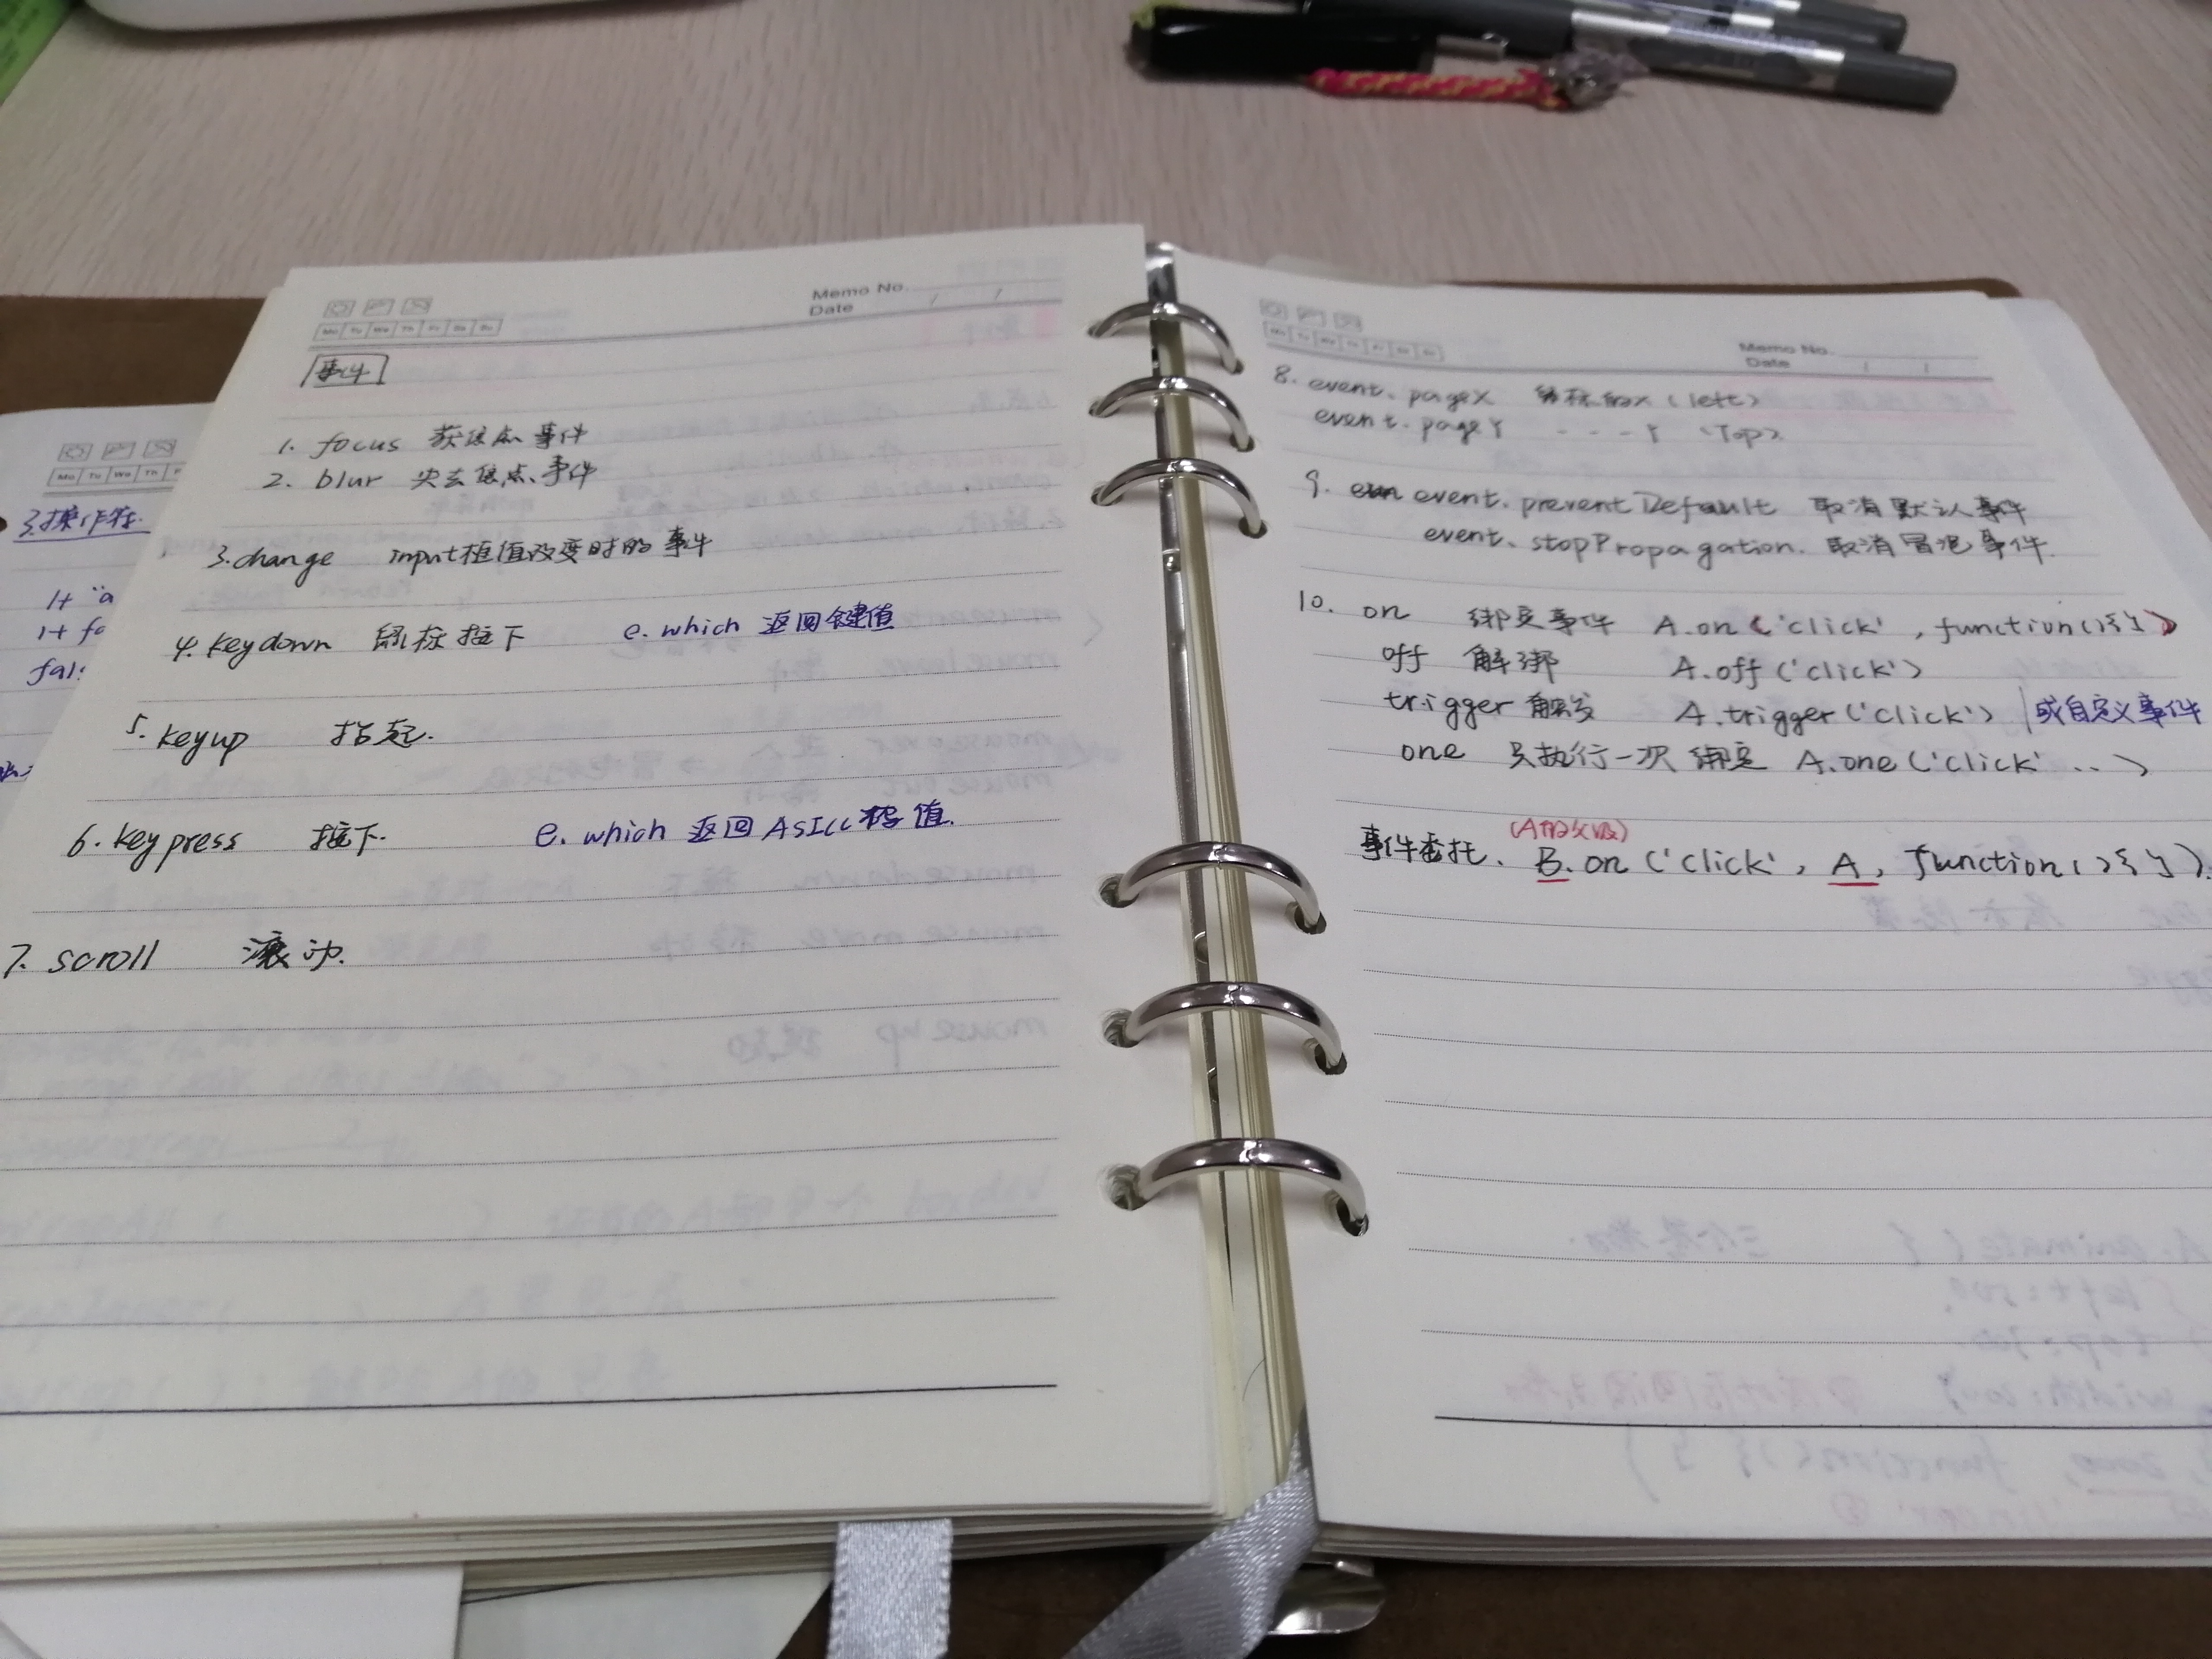 Memo No.
Date / /
Mo Tu We Th Fr Sa Su
事件
1. focus 获焦点事件
2. blur 失去焦点事件
3. change input框值改变时的事件
4. keydown 鼠标按下 e. which 返回键值
5. keyup 抬起.
6. keypress 按下. e. which 返回 ASICC 值.
7. scroll 滚动.
Mo Tu We Th
3.操作符.
1+ "a
1+ fa
fal
Memo No.
Date / /
8. event. pageX 鼠标的X (left)
event. pageY - - - Y (Top)
9. event. preventDefault 取消默认事件
event. stopPropagation. 取消冒泡事件.
10. on 绑定事件 A.on('click', function(){})
off 解绑 A.off('click')
trigger 触发 A.trigger('click') |或自定义事件
one 只执行一次 绑定 A.one('click' ..)
(A的父级)
事件委托. B.on('click', A, function(){}).